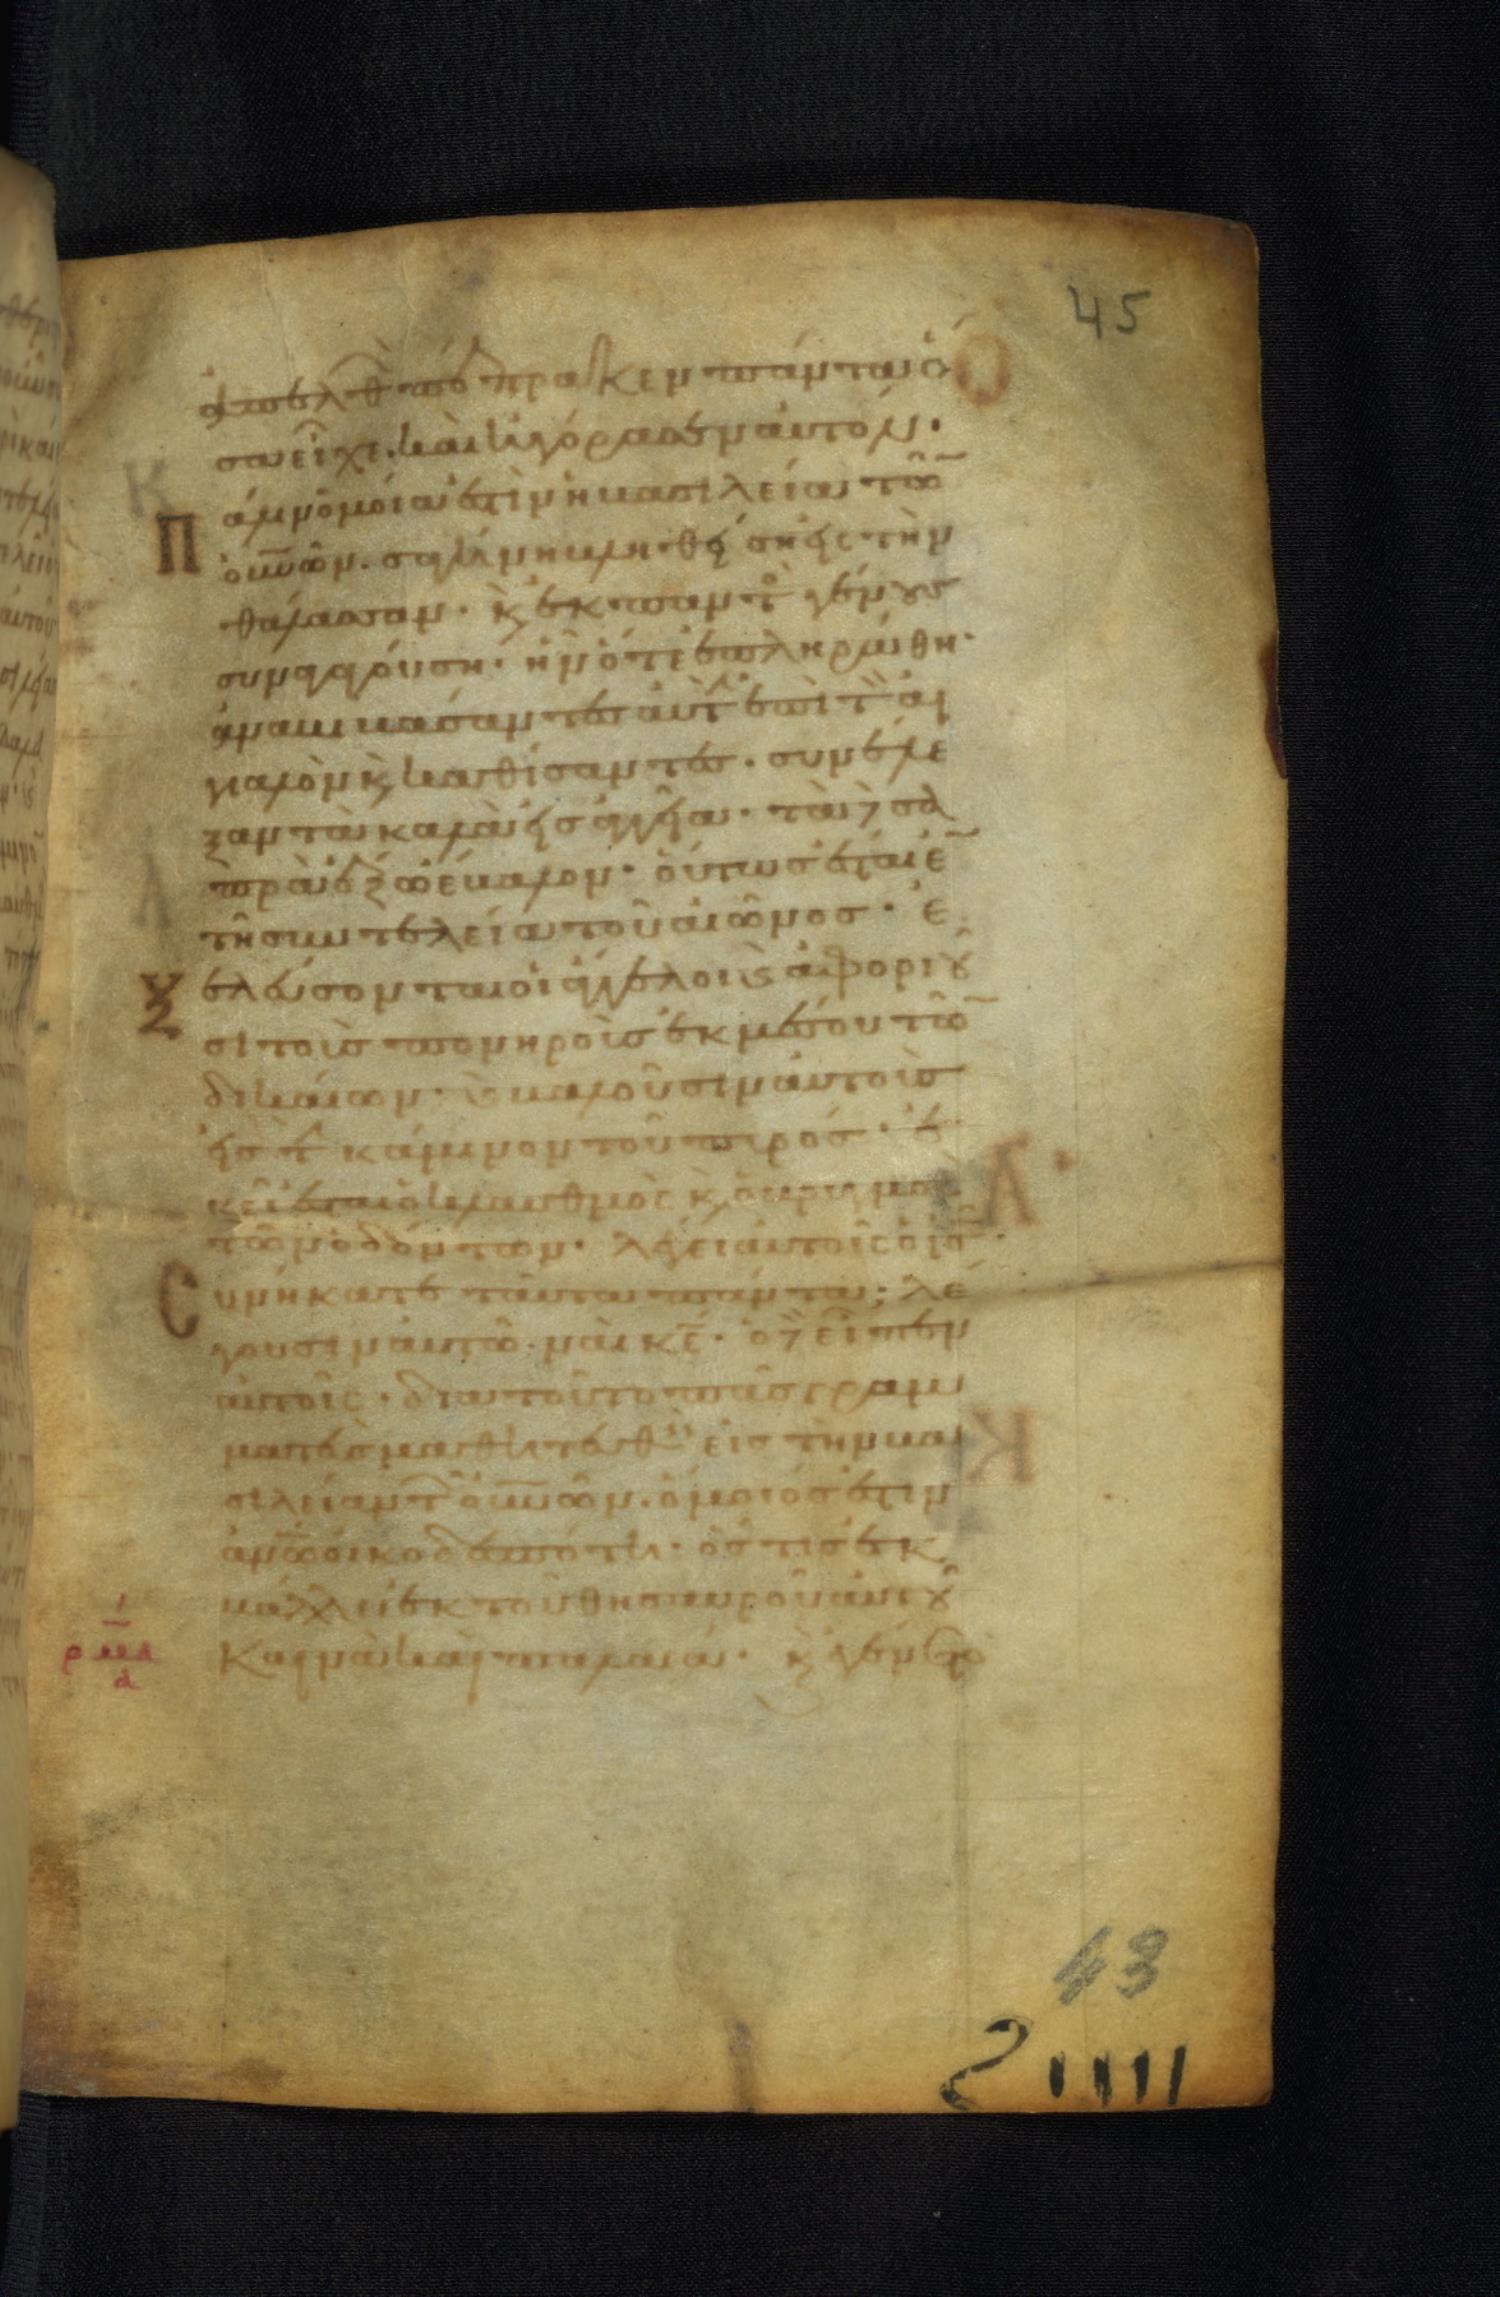 45
ἀπελθὼν πέπρακεν πάντα ὅ
σα εἶχε. καὶ ἠγόρασεν αὐτόν.
Πάλιν ὁμοία ἐστὶν ἡ βασιλεία τῶ
οὐνῶν. σαγήνη βληθείση εἰς τὴν
θάλασσαν. κ ἐκ παντ γένους
συναγαγούση. ἣν ὅτε ἐπληρώθη.
ἀναβιβάσαντες αὐτ ἐπὶ τὸν αἰ
γιαλὸν κ καθίσαντες. συνέλε
ξαν τὰ καλὰ εἰς ἀγγεῖα. τὰ δὲ σα
πρὰ ἔξω ἔβαλον. οὕτως ἔσται ἐ
τῆ συντελεία τοῦ αἰῶνος. ἐ
ξελεύσονται οἱ ἄγγελοι κ ἀφοριοῦ
σι τοὺς πονηροὺς ἐκ μέσου τῶ
δικαίων. κ βαλοῦσιν αὐτοὺς
εἰς τ κάμινον τοῦ πυρός. ἐ
κεῖ ἔσται ὁ κλαυθμὸς κ ὁ βρυγμὸς
τῶν ὀδόντων. λέγει αὐτοῖς ὁ ις.
Συνήκατε ταῦτα πάντα; λέ
γουσιν αὐτῶ. ναὶ κε. ὁ δὲ εἶπεν
αὐτοῖς. διὰ τοῦτο πᾶς γραμ
ματεὺς μαθητευθεὶς εἰς τὴν βα
σιλείαν τ οὐνῶν. ὅμοιός ἐστιν
ανω οἰκοδεσπότη. ὅστις ἐκ
βάλλει ἐκ τοῦ θησαυροῦ αὐτοῦ
καινὰ καὶ παλαιά. κ ἐγένετο
43